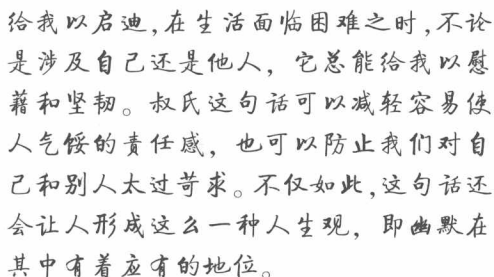 给我以启迪,在生活面临困难之时,不论
是涉及自己还是他人，它总能给我以慰
藉和坚韧。叔氏这句话可以减轻容易使
人气馁的责任感，也可以防止我们对自
己和别人太过苛求。不仅如此,这句话还
会让人形成这么一种人生观，即幽默在
其中有着应有的地位。